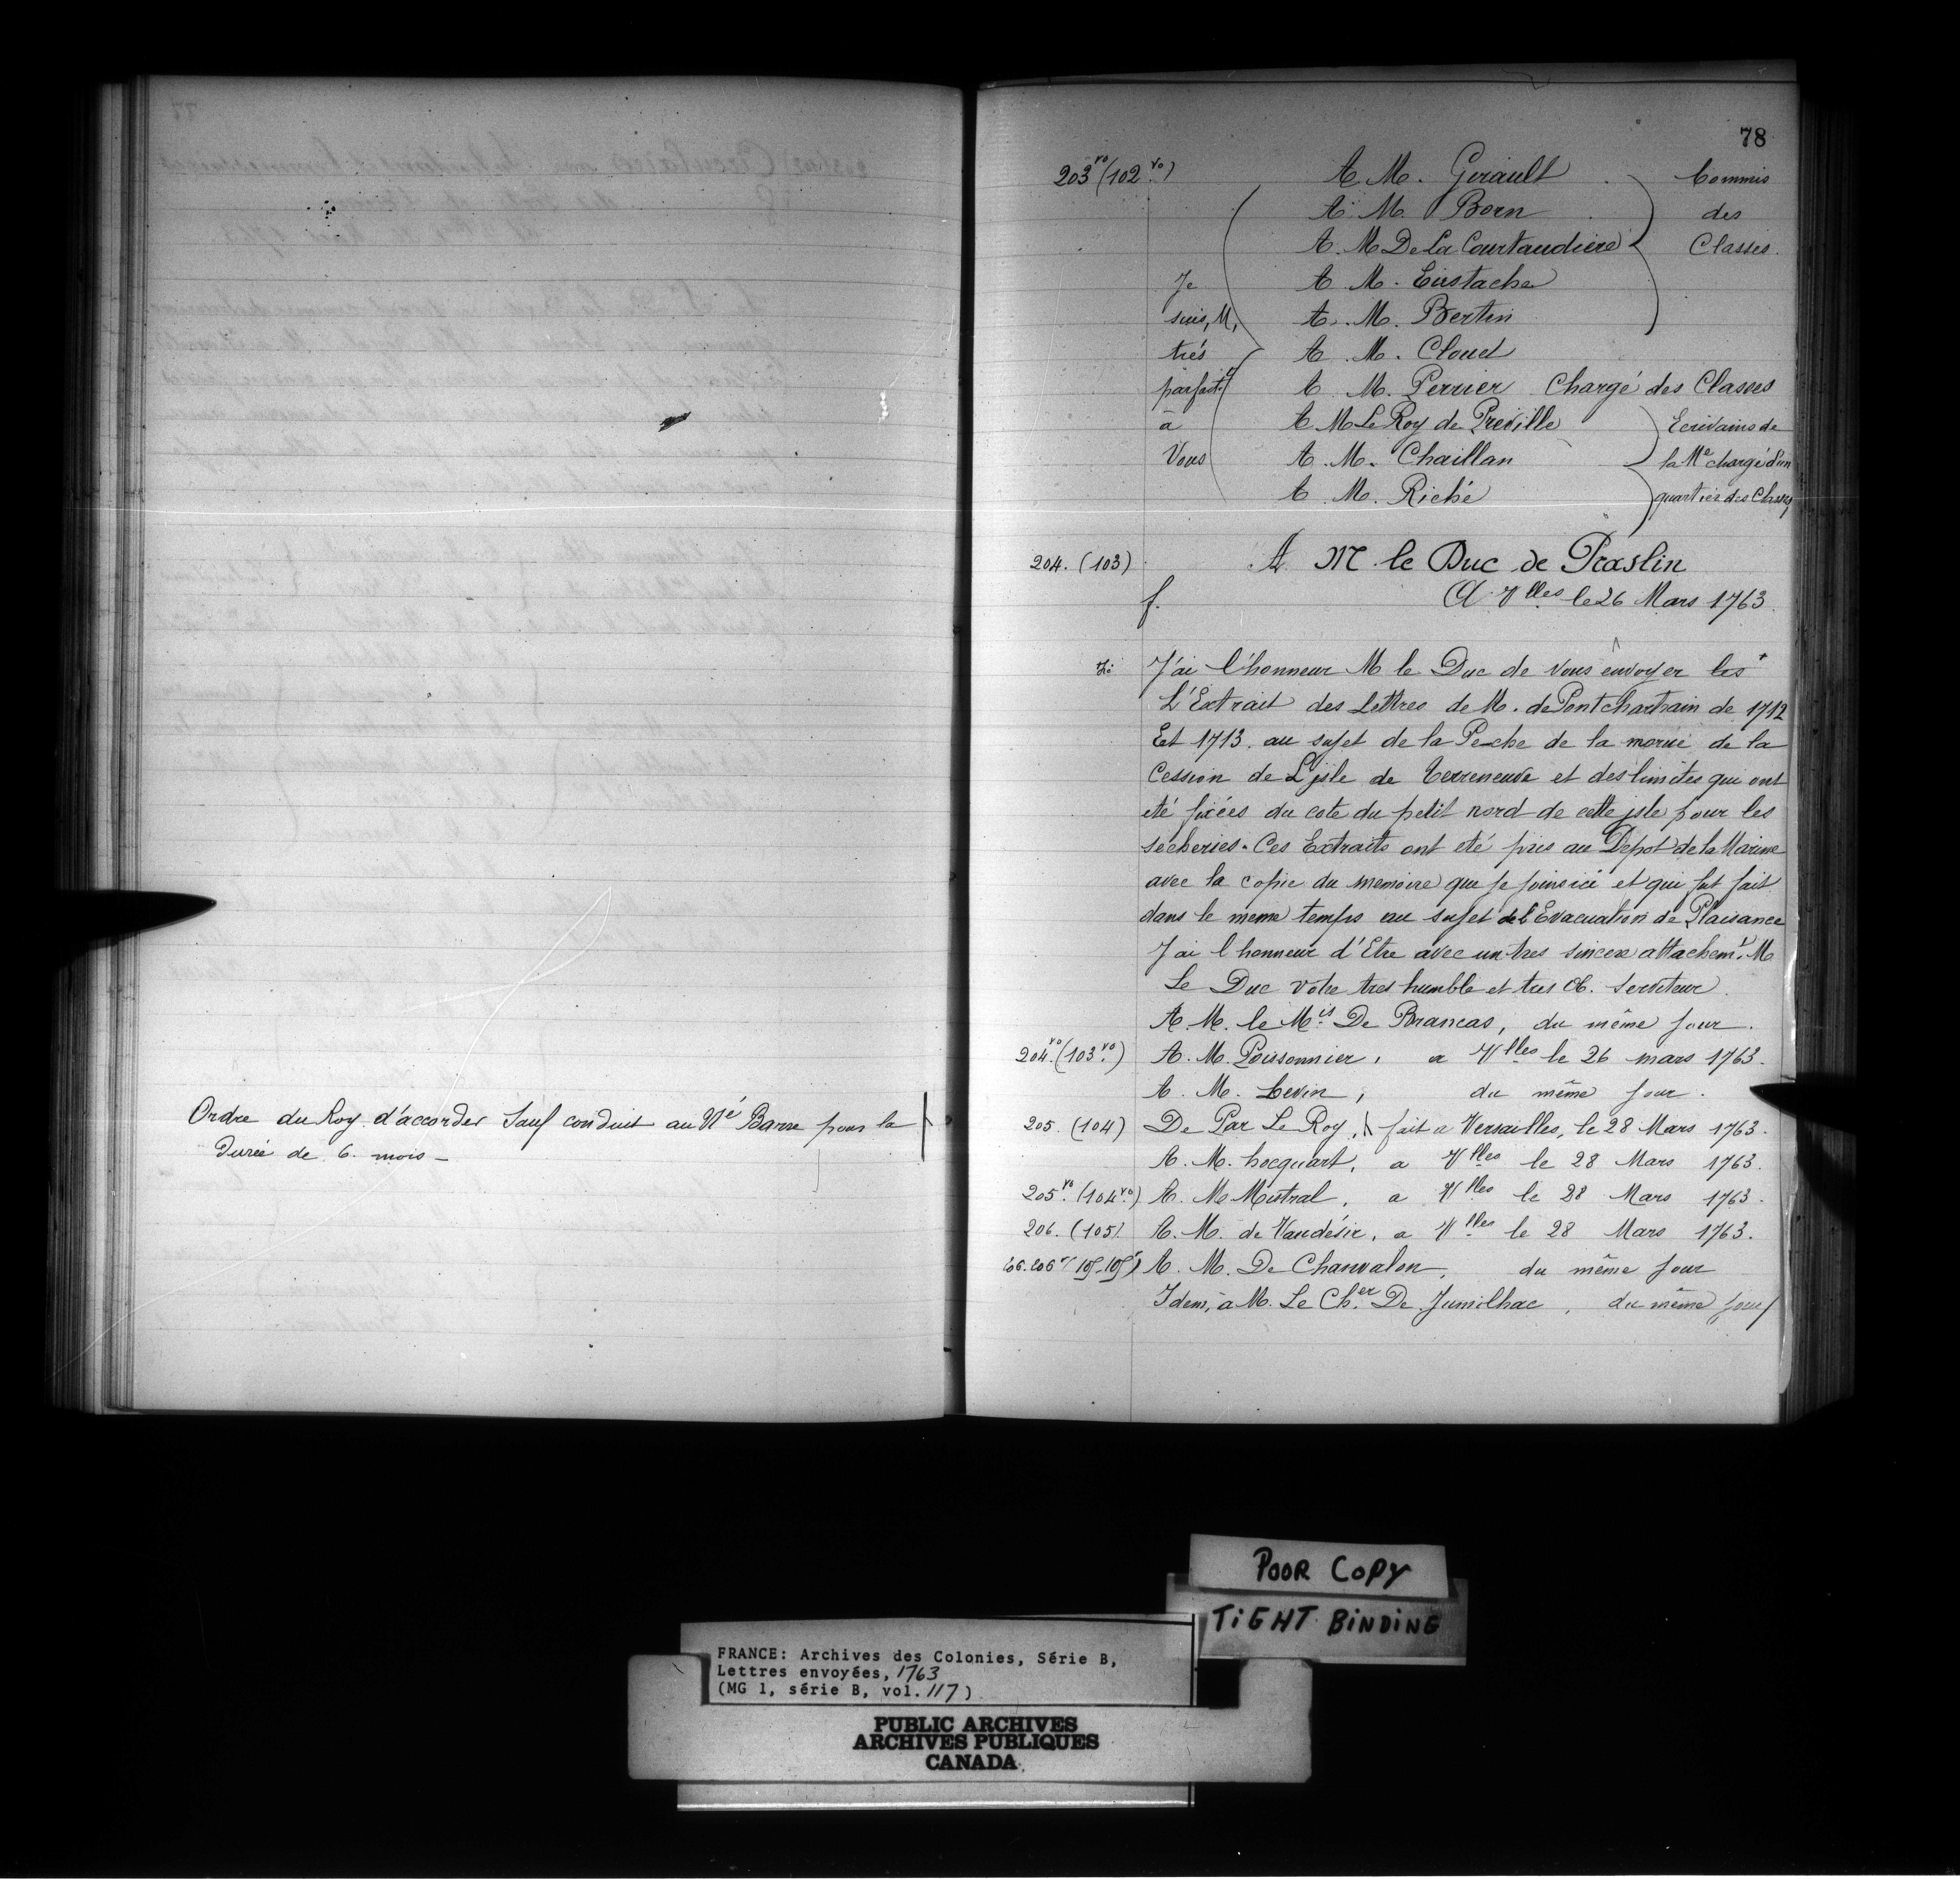 Ordre du Roy d'accorder Sauf conduit au Né Barre pour la
Durée de 6. mois -
78
203 vo (102 vo) A M. Girault Commis
A M. Born des
A. M De La Courtaudiere Classes.
Je A M. Eustache
suis, M, A. M. Bertin
trés A. M. Cloud
parfait.t A M. Perrier Chargé des Classes
à A M Le Roy de Preville Ecrivains de
Vous A. M. Chaillan la Me chargé d'un
A M. Riché quartier des Classes
204. (103) A M le Duc de Praslin
f. A Vlles le 26 Mars 1763.
J'ai l'honneur M le Duc de vous envoyer les +
L'Extrait des Lettres de M. de Pontchartrain de 1712
Et 1713. au sujet de la Peche de la morue de la
Cession de L'jsle de Terreneuve et des limites qui ont
eté fixées du cote du petit nord de cette jsle pour les
sécheries. Ces Extraits ont eté pris au Depot de la Marine
avec la copie du memoire que je joins ici et qui fut fait
dans le meme temps au sujet de l'Evacuation de Plaisance
J'ai l honneur d'Etre avec un tres sincere attachem.t M
Le Duc votre tres humble et tres Ob. Serviteur.
A. M. le Mis De Brancas, du même jour.
204 vo (103 vo) A. M. Poissonnier, a Vlles le 26 mars 1763.
A. M. Levin, du même jour.
205. (104) De Par Le Roy, fait a Versailles, le 28 Mars 1763.
A. M. hocquart, a Vlles le 28 Mars 1763.
205 vo (104 vo) A. M. Mistral, a Vlles le 28 Mars 1763.
206. (105) A. M. de Vaudésir, a Vlles le 28 Mars 1763.
A. M. De Chanvalon, du même jour
Idem, à M. Le Cher De Jumilhac, du même jour
POOR COPY
TIGHT BINDING
FRANCE: Archives des Colonies, Série B,
Lettres envoyées, 1763
(MG 1, série B, vol. 117)
PUBLIC ARCHIVES
ARCHIVES PUBLIQUES
CANADA